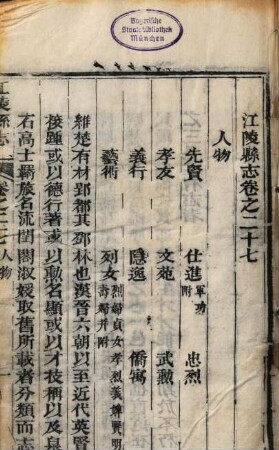 Bayerische
Staatsbibliothek
München
江陵縣志卷之二十七
人物
先賢 仕進 軍功附 忠烈
孝友 文苑 武勳
義行 隱逸 僑寓
藝術 列女 烈婦貞女孝烈義婢賢明壽婦并附
維楚有材郢都其鄧林也漢晉六朝以至近代英賢
接踵或以德行著或以勳名顯或以才技稱以及泉
石高士羈旅名流閨閣淑媛取舊所載者分類而志
江陵縣志
卷之二十七 人物